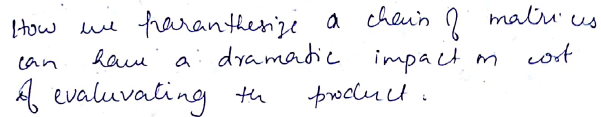 How we paranthesize a chain of matrices
can have a dramatic impact on cost
of evaluvating the product.